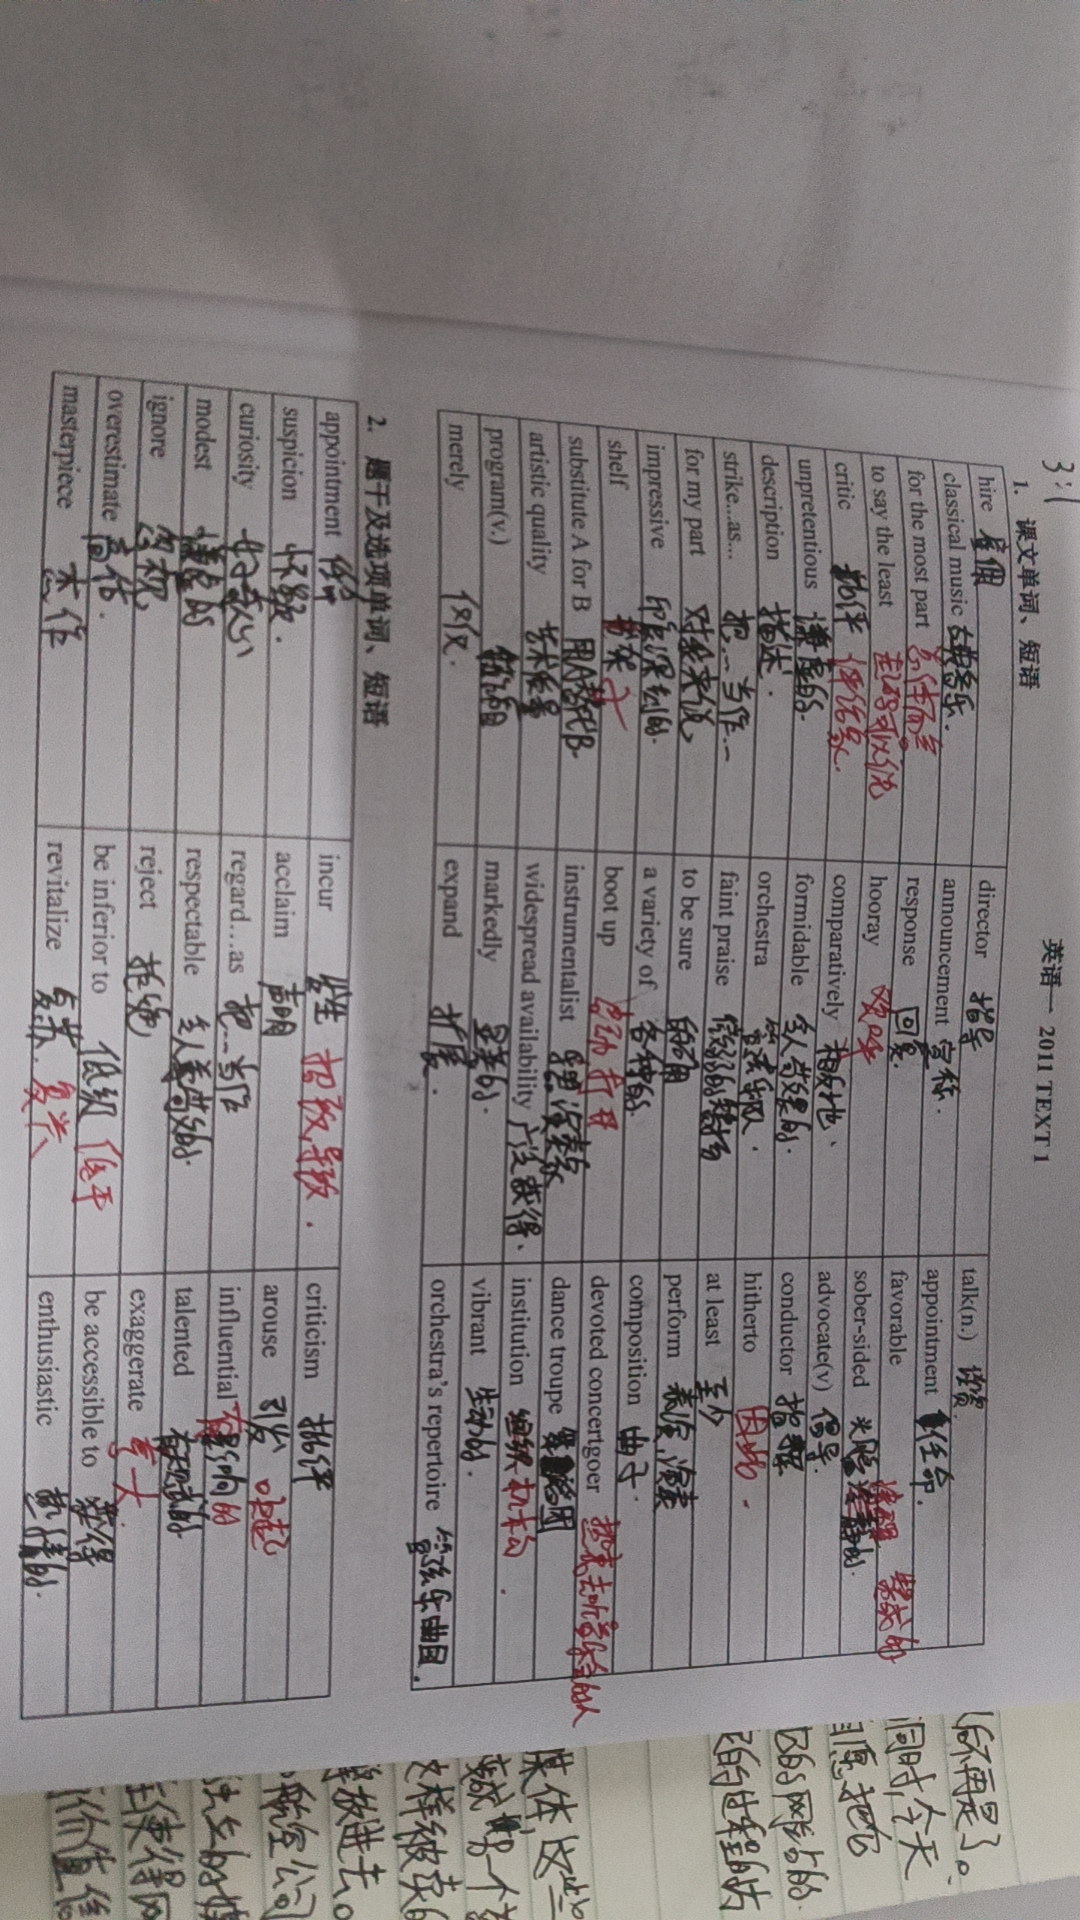 3:1
英语一 2011 TEXT 1
1. 课文单词、短语
hire 雇佣 director 指导 talk(n.)
classical music 古典音乐. announcement 宣称. appointment 任命.
for the most part 总体而言 response 回复. favorable 赞成的
to say the least 至少可以说 hooray 欢呼 sober-sided
critic 批评 评论家. comparatively 相反地、 advocate(v) 倡导.
unpretentious 谦虚的. formidable 令人敬畏的. conductor 指挥
description 描述. orchestra 管弦乐队. hitherto 因此.
strike...as... 把...当作... faint praise 微弱的赞扬 at least 至少
for my part 对我来说 to be sure 的确 perform 表演, 演奏
impressive 印象深刻的. a variety of 各种的 composition 曲子.
shelf 书架 boot up 启动 打开 devoted concertgoer 热衷去听音乐会的人
substitute A for B 用A替代B instrumentalist 演奏家 dance troupe 舞蹈团
artistic quality 艺术质量 widespread availability 广泛获得、 institution 组织 机构.
program(v.) markedly 显著的. vibrant 生动的.
merely 仅仅. expand 扩展. orchestra's repertoire 管弦乐曲目.
2. 题干及选项单词、短语
appointment incur 发生 招致,导致. criticism 批评
suspicion 怀疑. acclaim 声明 arouse 引发 唤起
curiosity 好奇心 regard...as 把...当作 influential 有影响的
modest 谦虚的 respectable 令人尊敬的. talented 有天赋的
ignore 忽视 reject 拒绝 exaggerate 夸大
overestimate 高估. be inferior to 低级 低于 be accessible to 获得
masterpiece 杰作 revitalize 复苏. 复兴 enthusiastic 热情的.